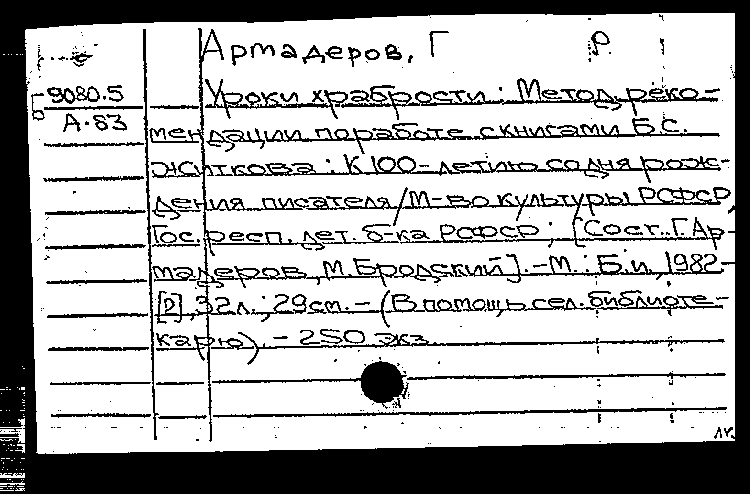 Армадеров, Г Р.
Б 9080.5
А-83
Уроки храбрости : Метод. реко-
мендации по работе с книгами Б.С.
Житкова : К 100-летию со дня рож-
дения писателя / М-во культуры РСФСР,
Гос. респ. дет. б-ка РСФСР ; [Сост. Г. Ар-
мадеров, М. Бродский]. - М. : Б. и., 1982-
[2], 32 л. ; 29 см. - (В помощь сел. библиоте-
карю). - 250 экз.